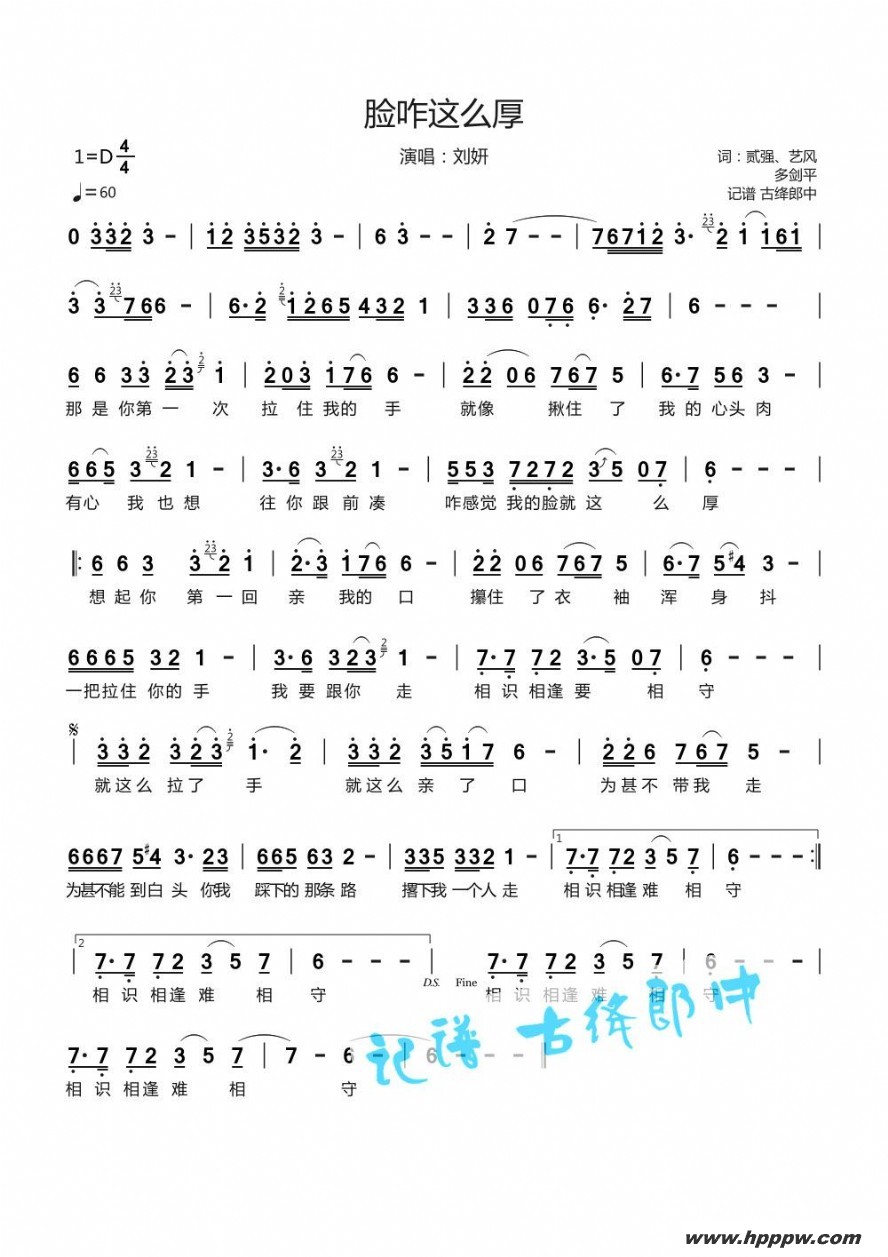 脸咋这么厚
1=D 4/4
演唱：刘妍
词：贰强、艺风
多剑平
♩=60
记谱 古绛郎中
0 3 3 2 3 - | 1 2 3 5 3 2 3 - | 6 3 - - | 2 7 - - | 7 6 7 1 2 3· 23 2 1 1 6 1 |
3 3 23 7 6 6 - | 6· 2 2 1 2 6 5 4 3 2 1 | 3 3 6 0 7 6 6· 2 7 | 6 - - - |
6 6 3 3 2 3 2 1 | 2 0 3 1 7 6 6 - | 2 2 0 6 7 6 7 5 | 6· 7 5 6 3 - |
那 是 你第 一 次 拉 住 我的 手 就像 揪住 了 我 的 心头 肉
6 6 5 3 23 2 1 - | 3· 6 3 23 2 1 - | 5 5 3 7 2 7 2 3 5 0 7 | 6 - - - |
有心 我 也 想 往 你 跟 前 凑 咋感觉 我的脸就 这 么 厚
‖: 6 6 3 3 23 2 1 | 2· 3 1 7 6 6 - | 2 2 0 6 7 6 7 5 | 6· 7 5 #4 3 - |
想 起 你 第 一 回 亲 我的 口 攥住 了 衣 袖 浑 身 抖
6 6 6 5 3 2 1 - | 3· 6 3 2 3 2 1 - | 7· 7 7 2 3· 5 0 7 | 6 - - - |
一把拉住 你的 手 我 要 跟你 走 相 识 相逢 要 相 守
| 3 3 2 3 2 3 2 1· 2 | 3 3 2 3 5 1 7 6 - | 2 2 6 7 6 7 5 - |
就这么 拉 了 手 就这么 亲 了 口 为甚不 带我 走
6 6 6 7 5 #4 3· 2 3 | 6 6 5 6 3 2 - | 3 3 5 3 3 2 1 - | 1 7· 7 7 2 3 5 7 | 6 - - - :‖
为甚不能 到白 头 你我 踩下的 那条 路 撂下我 一个人 走 相 识 相逢 难 相 守
2 | 7· 7 7 2 3 5 7 | 6 - - - | D.S. Fine 7· 7 7 2 3 5 7 | 6 - - - |
相 识 相逢 难 相 守 相 识 相逢 难 相 守
7· 7 7 2 3 5 7 | 7 - 6 - | 6 - - - ‖
相 识 相逢 难 相 守
记谱 古绛郎中
www.hpppw.com